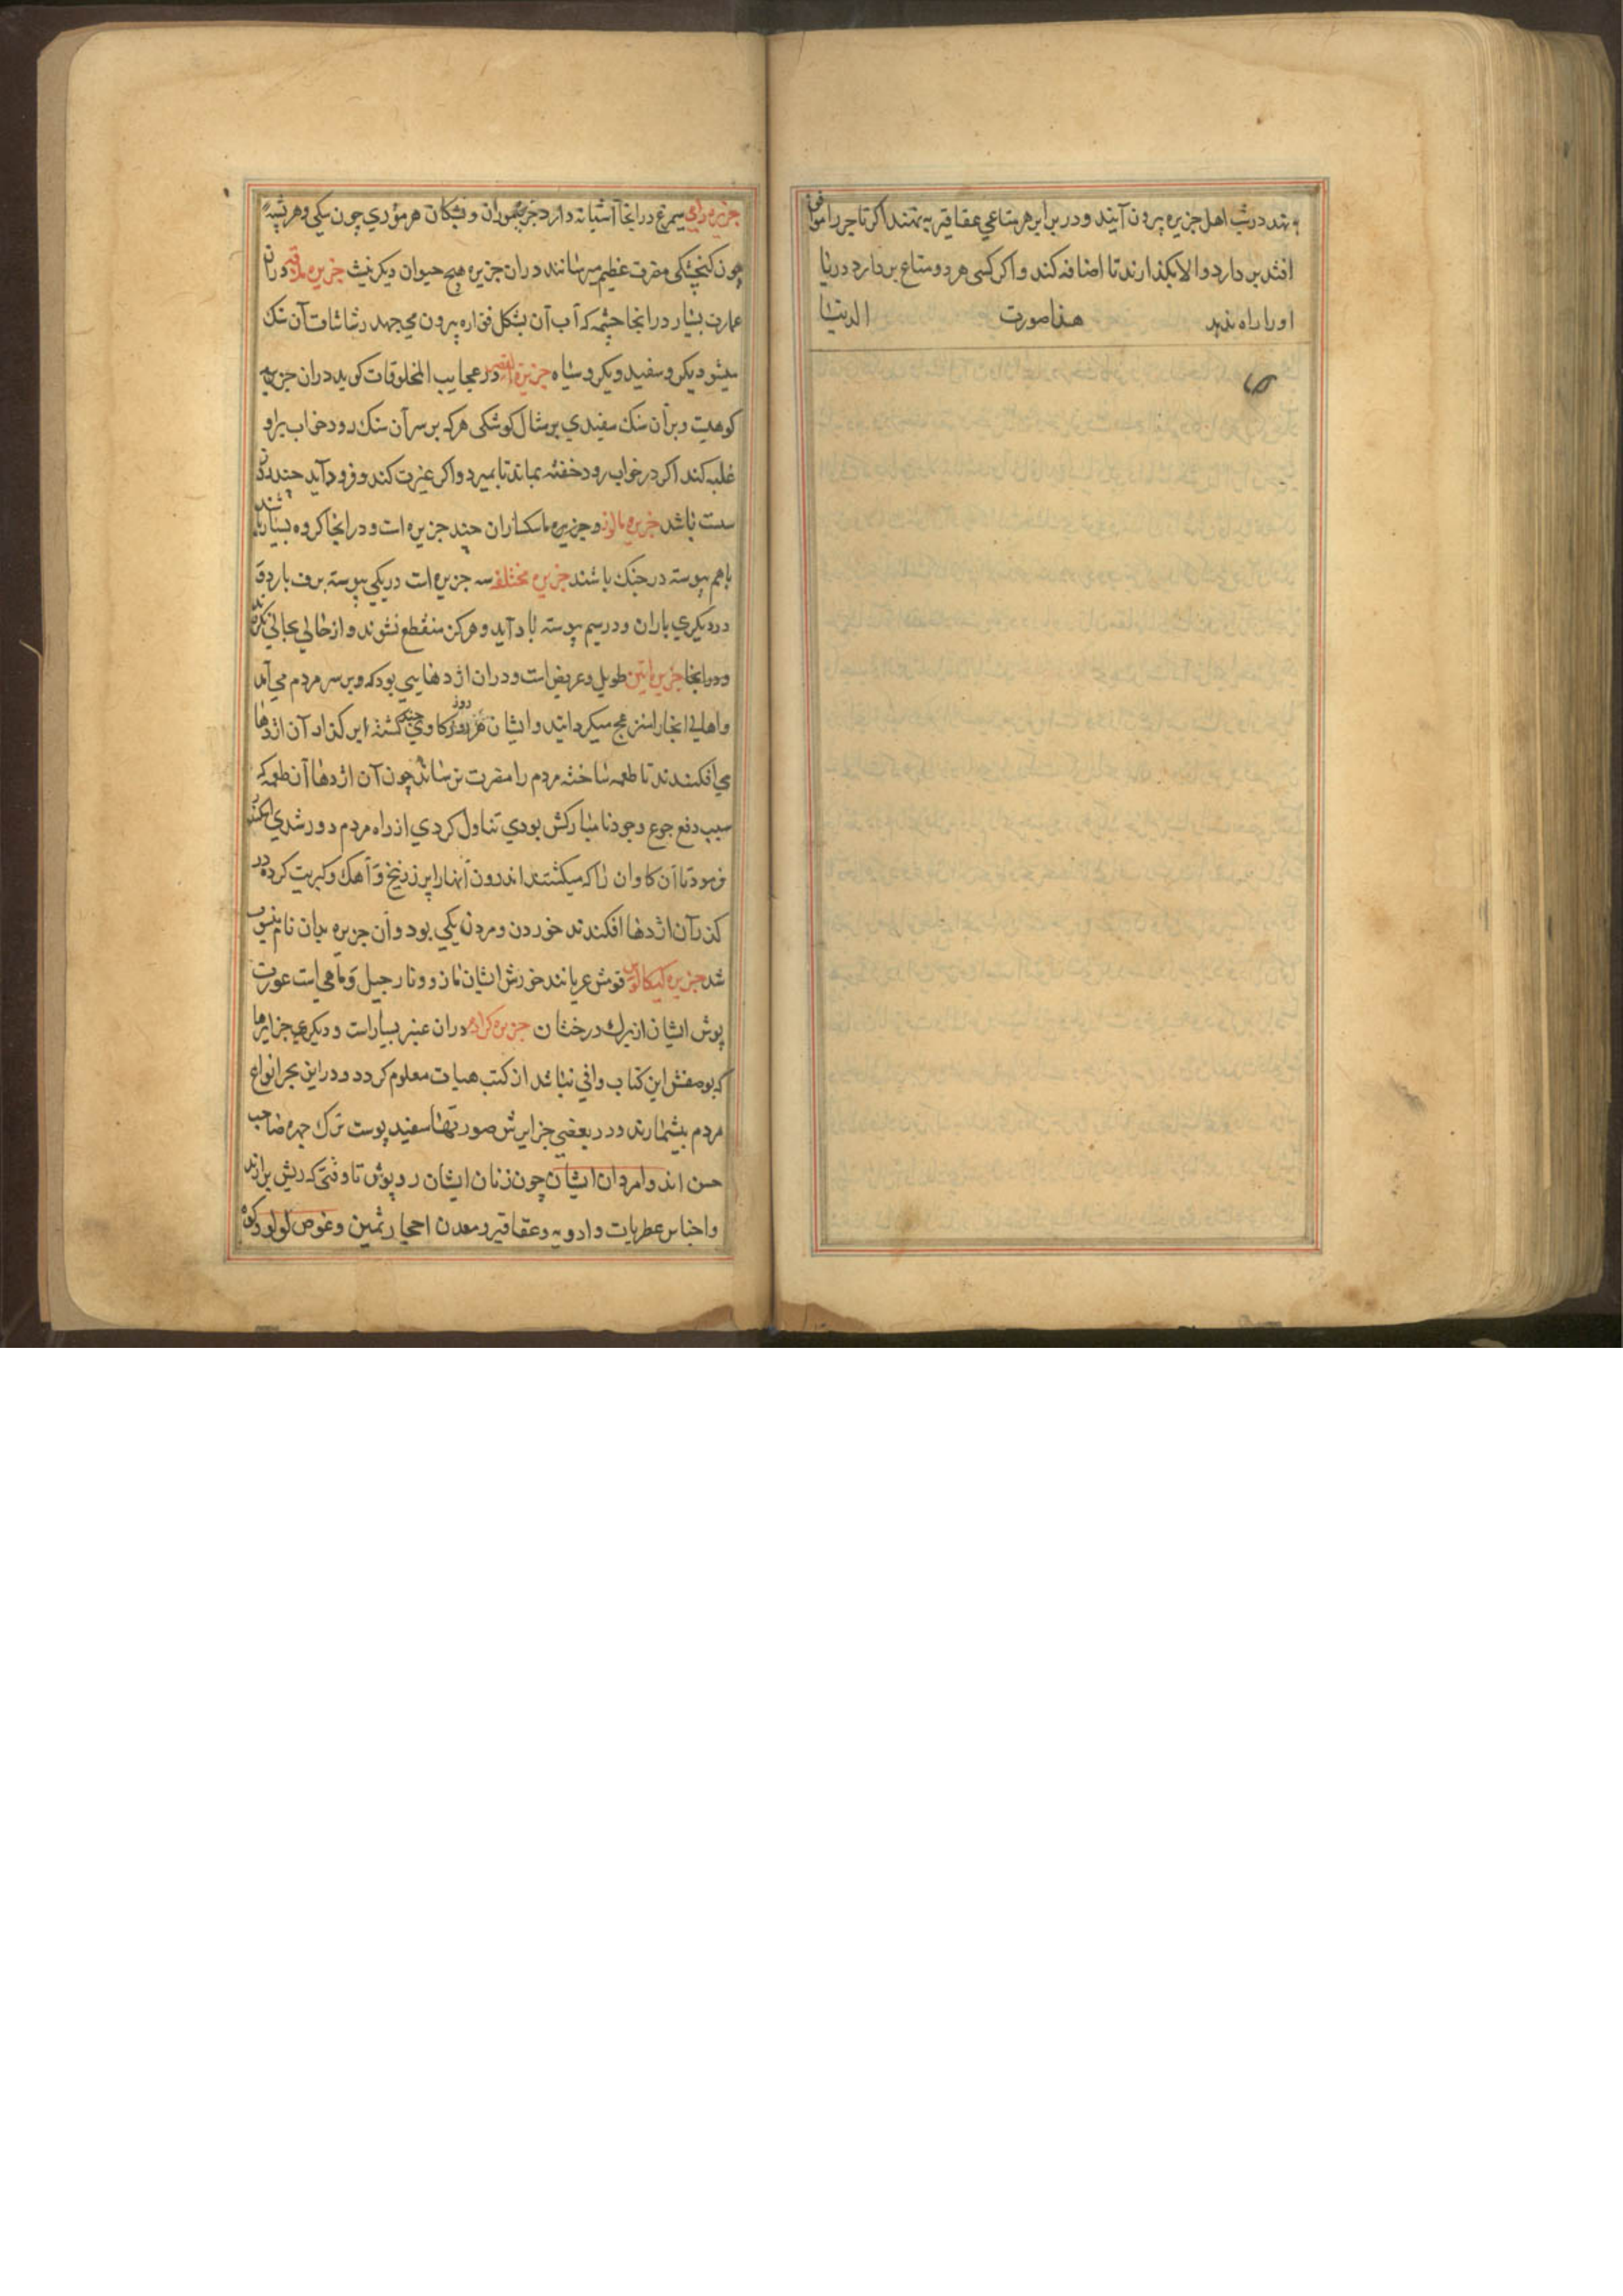 بنهند در شب اهل جزیره بیرون آیند و در برابر هر متاعی عقاقیر بنهند اکر تاجر را موافق
افتد بر دارد و الا بکذارند تا اضافه کند و اکر کسی هر دو متاع بر دارد دریا
او را راه ندهد هذا صورت الدنیا
جزیره رامی سیمرغ در انجا آشیانه دارد موران و هر موری چون سکی و هر پشه
چون کنجشکی مضرت عظیم میرسانند دران جزیره هیچ حیوان دیکر نیست جزیره دران
عمارت بسیار در انجا چشمه که آب آن بشکل فواره بیرون می جهد رشاشات آن سنک
میشود یکرو سفید و یکرو سیاه جزیره القصر در عجایب المخلوقات کوید دران جزیره
کوهیست و بران سنک سفیدی بر مثال کوشکی هر که بر سر آن سنک رود خواب برو
غلبه کند اکر در خواب رود خفته بماند تا بمیرد و اکر عزیمت کند و فرود آید چند روز
سست باشد جزیره و جزیره ماسکناران چند جزیره است و در انجا کروه بسیار باشند
با هم پیوسته در جنک باشند جزیره مختلفه سه جزیره است در یکی پیوسته برف بارد و
در دیکری باران و در سیم پیوسته باد آید و هرکز منقطع نشوند و از حالی بحالی نکردند
و در انجا جزیره تنین طویل و عریض است و دران اژدهایی بود که بر سر مردم می آمد
و اهالی انجا را منزعج میکردانید و ایشان هر روز کاوی چند کشته بر کذار آن اژدها
می افکندند تا طعمه ساخته مردم را مضرت نرساند چون آن اژدها آن طعمه که
سبب دفع جوع وجود نامبارکش بودی تناول کردی از راه مردم دور شدی اسکندر
فرمود تا آن کاوان را که میکشتند اندرون آنها را پر زرنیخ و آهک و کبریت کرده در
کذر آن اژدها افکندند خوردن و مردن یکی بود و آن جزیره بدان نام منسوب
شد جزیره قومش عریانند خورش ایشان نارجیل و ماهی است عورت
پوش ایشان از برک درختان جزیره دران عنبر بسیار است و دیکر جزایرها
که بوصفش این کتاب وافی نباشد از کتب هیات معلوم کردد و در این بحر انواع
مردم بیشمارند و در بعضی جزایرش صورتها سفید پوست ترک چهره صاحب
حسن اند و امردان ایشان چون زنان ایشان رو پوش تا وقتی که ریش برارند
و اجناس عطریات و ادویه و عقاقیر و معدن احجار ثمین و غوص لولو